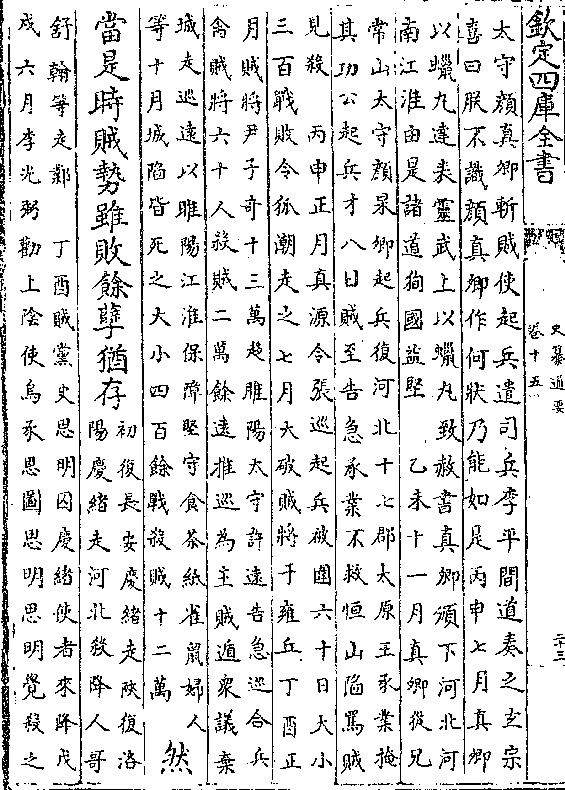 欽定四庫全書
史纂通要
卷十五
二十三
太守顔真卿斬賊使起兵遣司兵李平間道奏之玄宗
喜曰朕不識顔真卿作何狀乃能如是丙申七月真卿
以蠟丸達表靈武上以蠟丸致赦書真卿頒下河北河
南江淮由是諸道狥國益堅 乙未十一月真卿從兄
常山太守顔杲卿起兵復河北十七郡太原王承業掩
其功公起兵才八日賊至告急承業不救恒山陷罵賊
見殺 丙申正月真源令張巡起兵被圍六十日大小
三百戰敗令狐潮走之七月大破賊將于雍丘丁酉正
月賊將尹子奇十三萬趍睢陽太守許逺告急巡合兵
禽賊將六十人殺賊二萬餘逺推巡為主賊遁衆議棄
城走巡逺以睢陽江淮保障堅守食茶紙雀鼠婦人
等十月城陷皆死之大小四百餘戰殺賊十二萬
然
當是時賊勢雖敗餘孽猶存
初復長安慶緒走陜復洛
陽慶緒走河北殺降人哥
舒翰等走鄴 丁酉賊黨史思明囚慶緒使者來降戊
戌六月李光弼勸上隂使烏承恩圖思明思明覺殺之